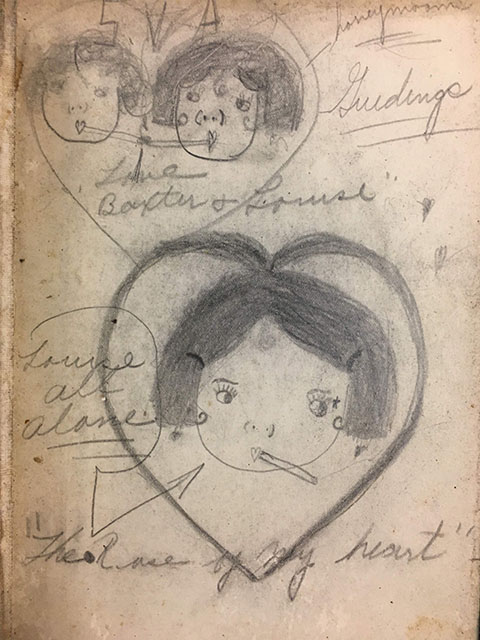 S V A
honeymoon
"Love
Baxter & Louise"
Louise
all
alone
"The Rose of My heart"